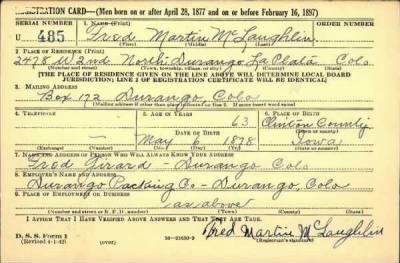 REGISTRATION CARD—(Men born on or after April 28, 1877 and on or before February 16, 1897)
SERIAL NUMBER 1. NAME (Print) ORDER NUMBER
U 485 Fred Martin McLaughlin
(First) (Middle) (Last)
2. PLACE OF RESIDENCE (Print)
2478 W 2nd North Durango La Plata Colo
(Number and street) (Town, township, village, or city) (County) (State)
[THE PLACE OF RESIDENCE GIVEN ON THE LINE ABOVE WILL DETERMINE LOCAL BOARD
JURISDICTION; LINE 2 OF REGISTRATION CERTIFICATE WILL BE IDENTICAL]
3. MAILING ADDRESS
Box 172 Durango Colo
[Mailing address if other than place indicated on line 2. If same insert word same]
4. TELEPHONE 5. AGE IN YEARS 6. PLACE OF BIRTH
63 Clinton County
DATE OF BIRTH (Town or county)
May 6 1878 Iowa
(Exchange) (Number) (Mo.) (Day) (Yr.) (State or country)
7. NAME AND ADDRESS OF PERSON WHO WILL ALWAYS KNOW YOUR ADDRESS
Fred Girard – Durango Colo
8. EMPLOYER'S NAME AND ADDRESS
Durango Packing Co – Durango, Colo
9. PLACE OF EMPLOYMENT OR BUSINESS
as above
(Number and street or R. F. D. number) (Town) (County) (State)
I AFFIRM THAT I HAVE VERIFIED ABOVE ANSWERS AND THAT THEY ARE TRUE.
D. S. S. Form 1
(Revised 4-1-42) (over) Fred Martin McLaughlin
(Registrant's signature)